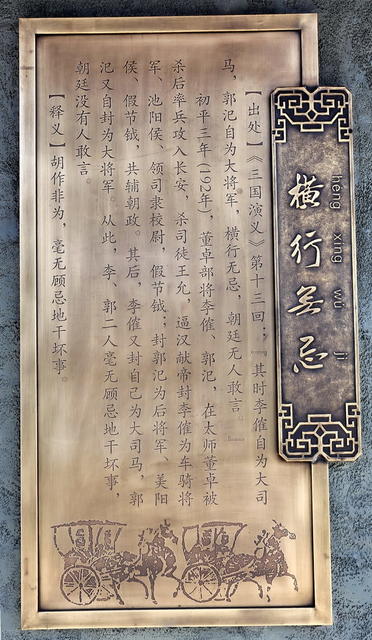 héng xíng wú jì
橫行無忌
【出处】《三国演义》第十三回：『其时李傕自为大司
马，郭汜自为大将军，横行无忌，朝廷无人敢言。』
初平三年(192年)，董卓部将李傕、郭汜，在太师董卓被
杀后率兵攻入长安，杀司徒王允，逼汉献帝封李傕为车骑将
军、池阳侯、领司隶校尉，假节钺；封郭汜为后将军、美阳
侯、假节钺，共辅朝政。其后，李傕又封自己为大司马，郭
汜又自封为大将军。从此，李、郭二人毫无顾忌地干坏事，
朝廷没有人敢言。
【释义】胡作非为，毫无顾忌地干坏事。